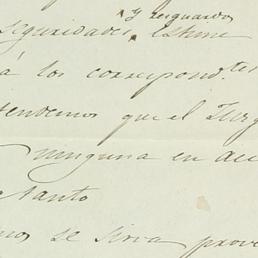 y resguardos
seguridades, estime
á los correspond.tes
tendemos que el Juzg
ninguna en acc
tanto
nos se sirva prove